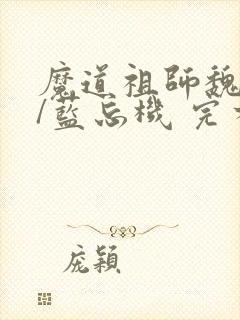 魔道祖師魏
/藍忘機 完
庞穎